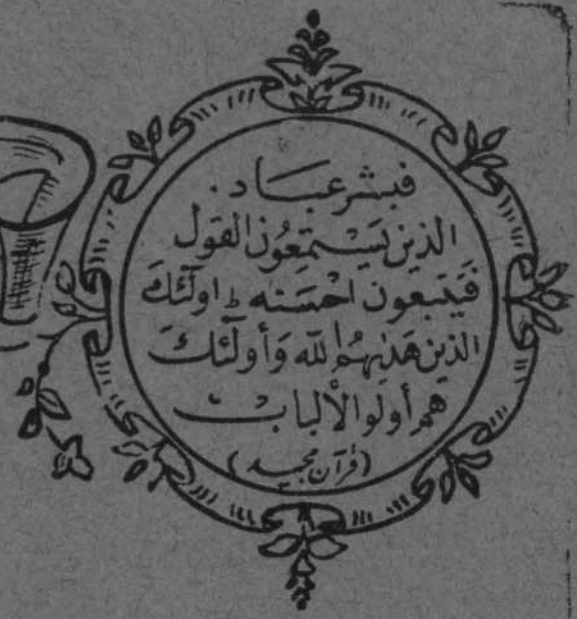 فبشر عباد.
الذين يَسْتَمِعُون القول
فَيَتَبعون احْسَنه ط اولَٓئكَ
الذين هَدٰيهُم الله وَأولَٓئكَ
هم أولو الألباب
(قرآن مجيد)